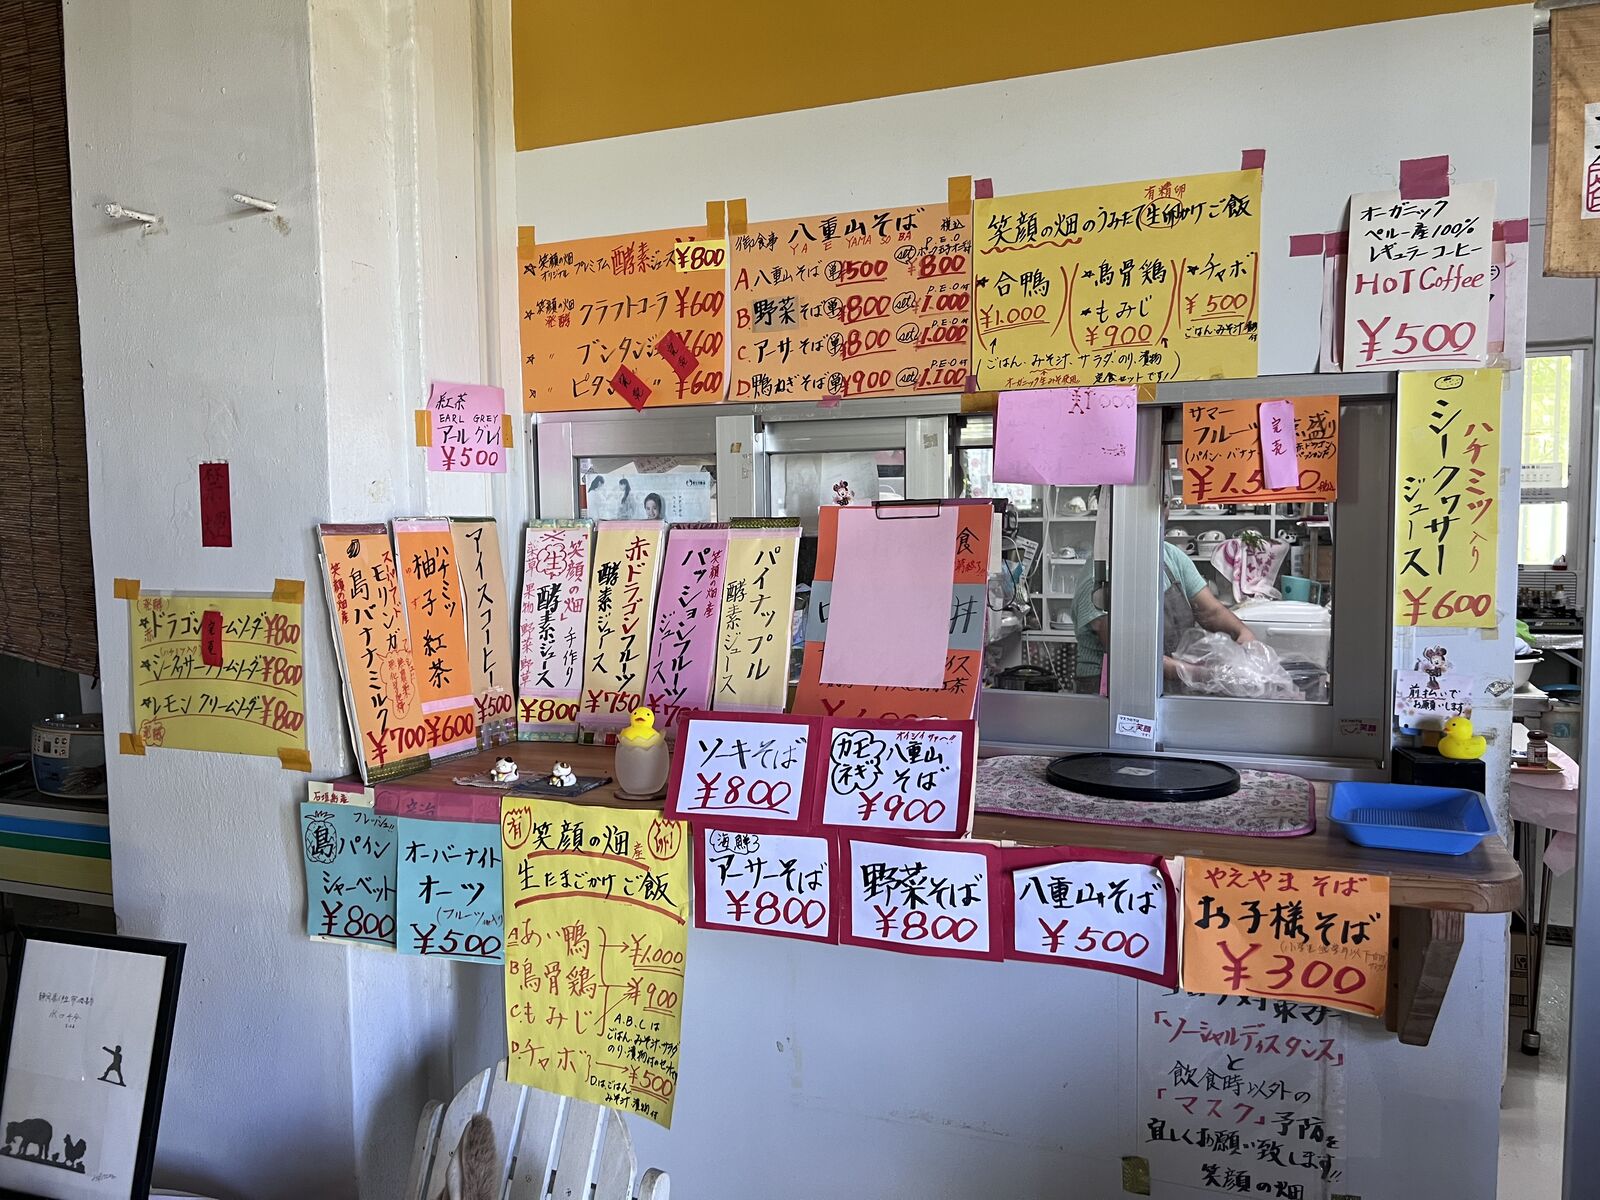 笑顔の畑
オリジナル プレミアム 酵素ジュース ¥800
笑顔の畑
発酵 クラフトコーラ ¥600
ブンタンジ ¥600
ピタ ¥600
御食事 八重山そば 税込
YA E YAMA SO BA
A 八重山そば 単 ¥500 set ¥800
B 野菜そば 単 ¥800 set 1.000
C. アーサーそば 単 ¥800 set 1.000
D 鴨ねぎそば 単 ¥900 set 1.100
有精卵
笑顔の畑のうみたて生卵かけご飯
合鴨
¥1.000
烏骨鶏
もみじ
¥900
チャボ
¥500
ごはん・みそ汁・漬物付
(ごはん、みそ汁、サラダのり、漬物)
オーガニック生みそ使用 定食セットです!
オーガニック
ペルー産100%
レギュラーコーヒー
HOT Coffee
¥500
紅茶
EARL GREY
アールグレイ
¥500
サマー
フルーツ 盛り
完売
¥1,500
ハチミツ入り
シークヮサー
ジュース
¥600
前払いで
お願いします
禁煙
(発酵)
ドラゴン ームソーダ ¥800
シークヮサークリームソーダ ¥800
レモン クリームソーダ ¥800
完売
笑顔の畑産
島バナナミルク
¥700
ハチミツ
柚子紅茶
¥600
アイスコーヒー
¥500
「笑顔の畑」手作り
生 酵素ジュース
薬草 果物 野菜 野草
¥800
赤ドラゴンフルーツ
酵素ジュース
¥750
笑顔の畑産
パッションフルーツ
ジュース
パイナップル
酵素ジュース
食
丼
紅茶
ソーキそば
¥800
オイシイサァ〜!!
カモネギ 八重山
そば
¥900
石垣島産
フレッシュ!!
島パイン
シャーベット
¥800
オーバーナイト
オーツ
(フルーツ入り)
¥500
有 笑顔の畑産
生たまごかけご飯
A あい鴨 → ¥1.000
B 烏骨鶏
C. もみじ → ¥900
A.B.Cは
ごはん、みそ汁、サラダ
のり、漬物付のセット
D. チャボ → ¥500
Dは、ごはん、
みそ汁、漬物付
(海鮮)
アーサーそば
¥800
野菜そば
¥800
八重山そば
¥500
やえやま そば
お子様そば
¥300
「ソーシャルディスタンス」
と
飲食時以外の
「マスク」予防を
宜しくお願い致します!!
笑顔の畑